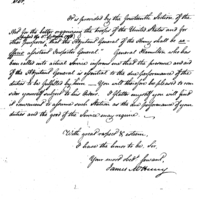 Sir,
It is provided by the fourteenth Section of the
Act for the better organizing the troops of the United States and for
other purposes, that the Adjutant General of the Army shall be ex
officio assistant Inspector General. General Hamilton who has
been called into actual service informs me that the presence and aid
of the Adjutant General is essential to the due performance of the
duties to be fulfilled by him. You will therefore be pleased to con-
sider yourself subject to his orders. I flatter myself you will find
it convenient to assume such Station as the due performance of your
duties and the good of the Service may require.
With great respect & esteem,
I have the honor to be Sir,
Your most obed. servant,
James McHenry